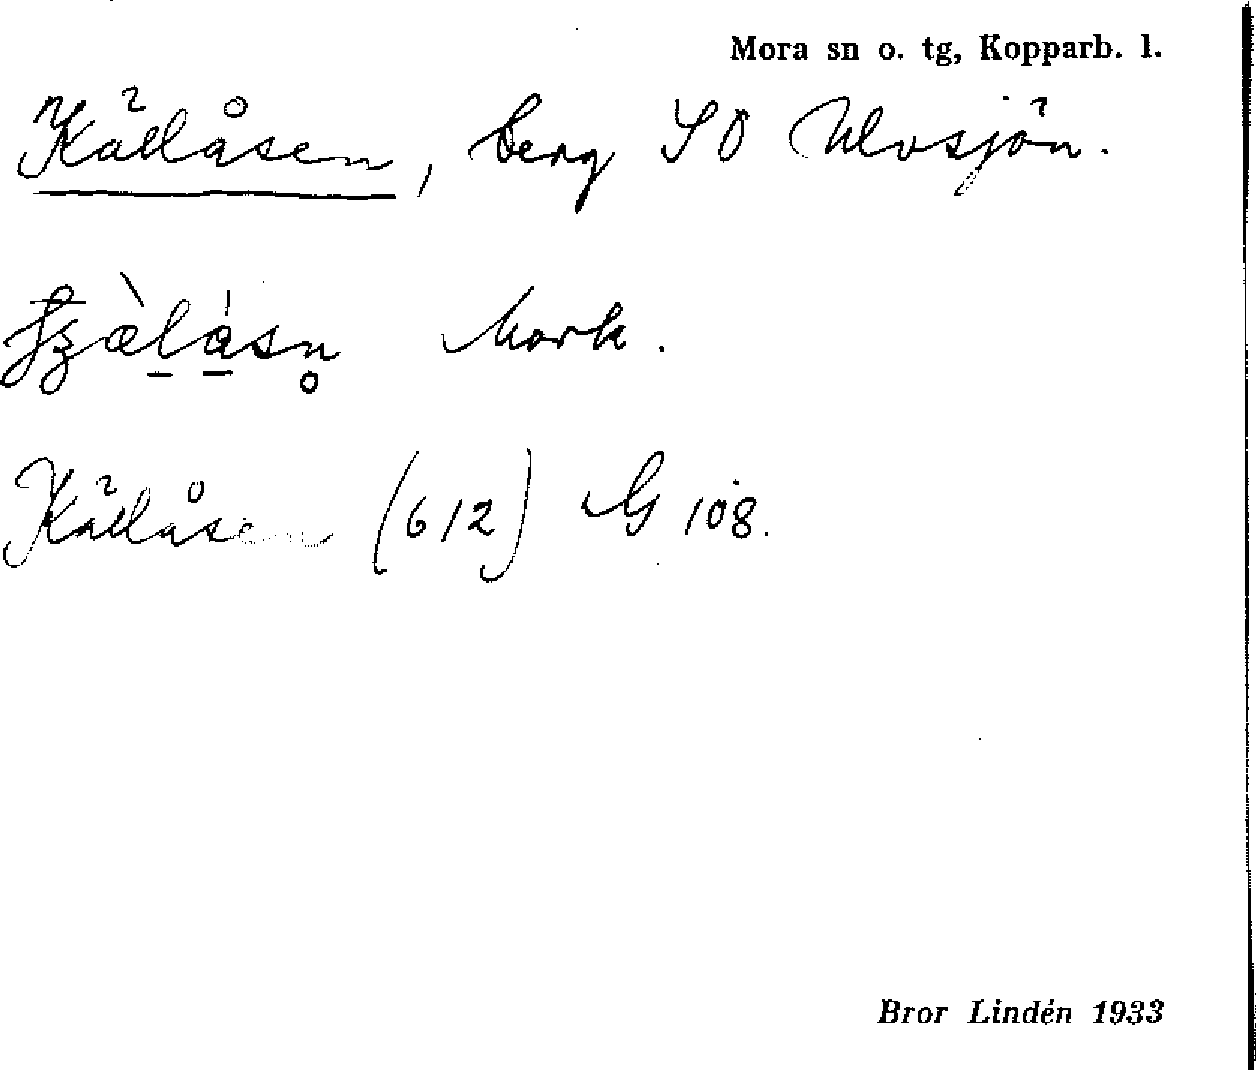 Mora sn o. tg, Kopparb. l.
Källåsen, berg SO Ulvsjön.
Mork.
Källåsen (612) G 108.
Bror Lindén 1933